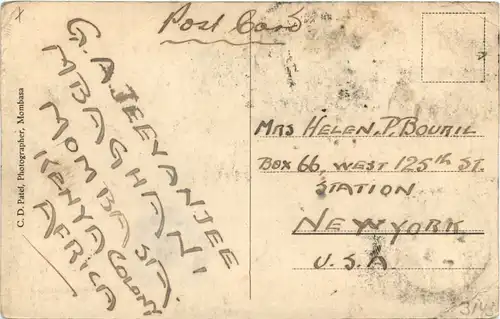 Post Card
G. A. JEEVANJEE
MBAGHANI
MOMBASA.
KENYA COLONY
AFRICA
C. D. Patel, Photographer, Mombasa
MRS HELEN. P. BOURIL
BOX 66, WEST 125th ST.
STATION
NEW YORK
U.S.A.
3143